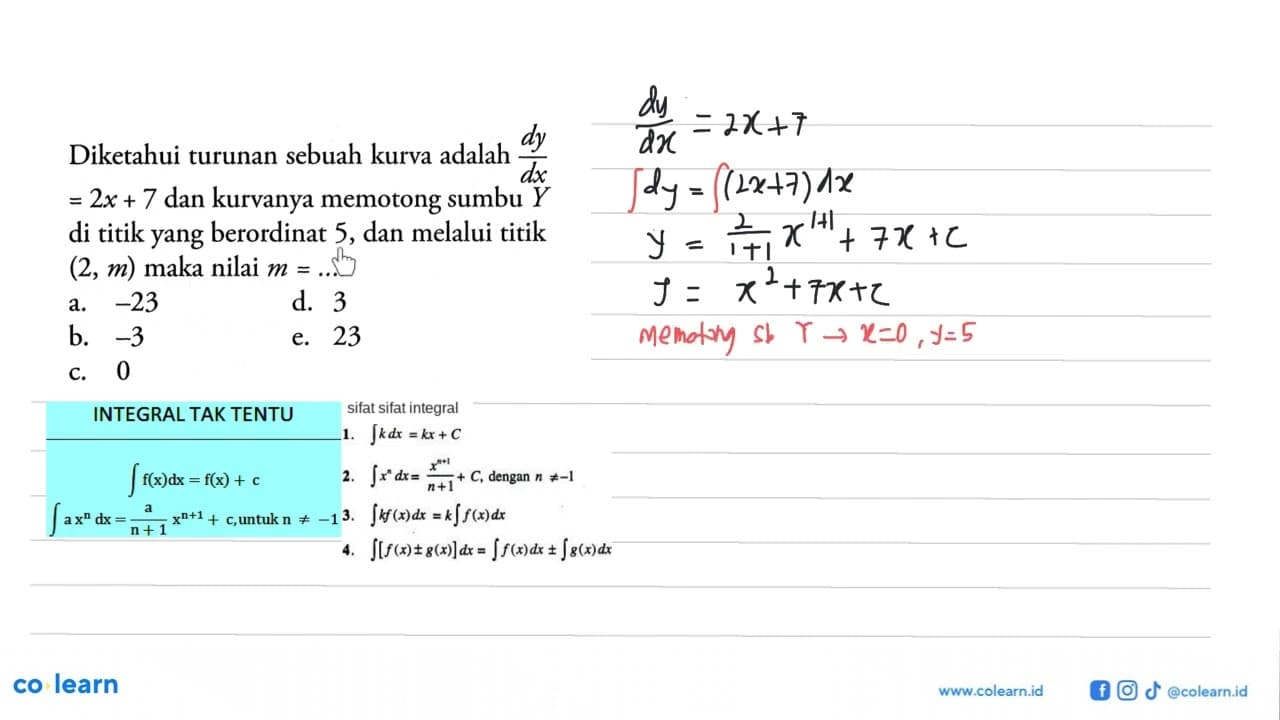 Diketahui turunan sebuah kurva adalah dy/dx
= 2x + 7 dan kurvanya memotong sumbu Y
di titik yang berordinat 5, dan melalui titik
(2, m) maka nilai m = ...
a. –23 d. 3
b. –3 e. 23
c. 0
dy/dx = 2x+7
∫dy = ∫(2x+7) dx
y = 2/1+1 x^1+1 + 7x + c
y = x² + 7x + c
memotong sb Y → x=0, y=5
INTEGRAL TAK TENTU
∫ f(x)dx = f(x) + c
∫ a xⁿ dx = a/n + 1 xⁿ⁺¹ + c,untuk n ≠ −1
sifat sifat integral
1. ∫k dx = kx + C
2. ∫xⁿ dx = xⁿ⁺¹/n+1 + C, dengan n ≠ –1
3. ∫kf(x)dx = k∫f(x)dx
4. ∫[f(x) ± g(x)] dx = ∫f(x)dx ± ∫g(x)dx
co learn
www.colearn.id
@colearn.id